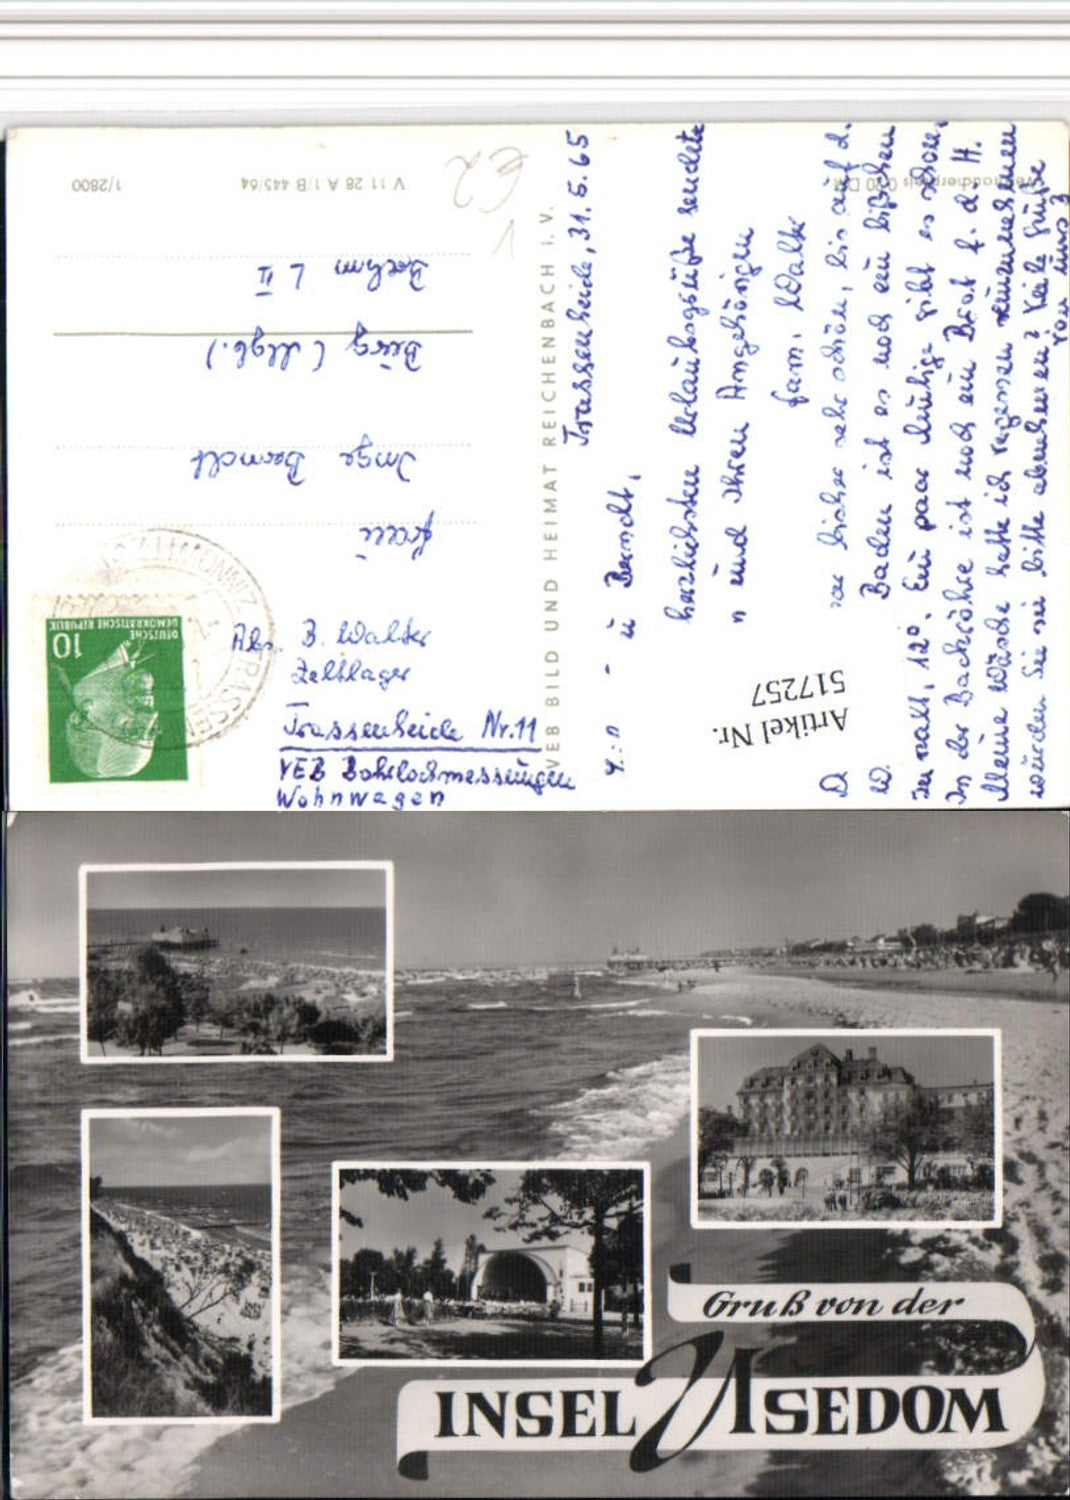 1/2800
V 11 28 A 1/B 445/64
Verbraucherpreis 0,20 DM
€2
V
VEB BILD UND HEIMAT REICHENBACH I. V.
DEUTSCHE
DEMOKRATISCHE REPUBLIK
10
Frau
Inge Berndt
Burg (Mgb.)
L II
Abs. B. Walter
Zeltlager
Trassenheide Nr. 11
VEB Bohrlochmessungen
Wohnwagen
Trassenheide, 31.5.65
u Berndt,
herzlichsten Urlaubsgrüße sendet
n und Ihren Angehörigen
Fam. Walter
D bisher sehr schön, bis auf d.
W Baden ist es noch ein bißchen
zu kalt, 12°. Ein paar Mutige gibt es schon.
In der Backröhre ist noch ein Brot f. d. H.
Meine Wäsche hatte ich vergessen
würden Sie sie bitte abnehmen? Viele Grüße
von uns 3
Artikel Nr.
517257
Gruß von der
INSEL USEDOM